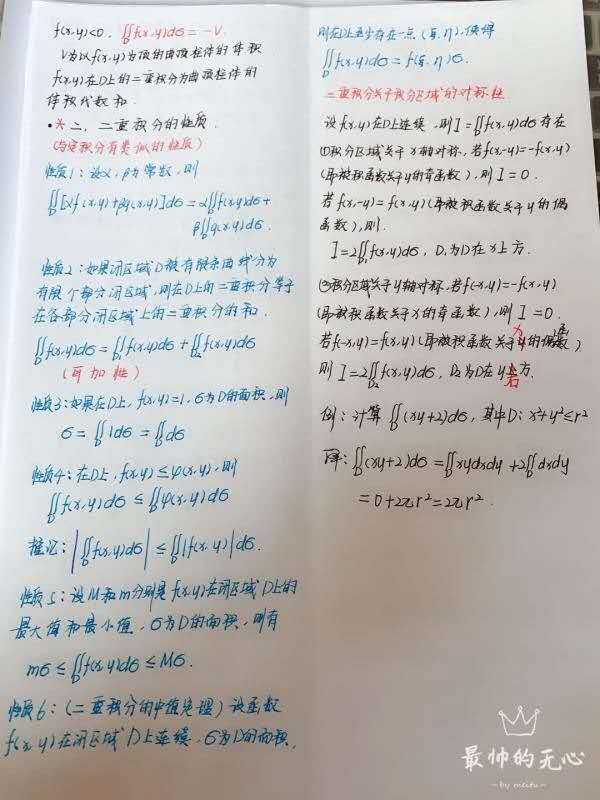 f(x,y)<0, ∬_D f(x,y)dσ = -V.
V为以f(x,y)为顶的曲顶柱体的体积
f(x,y)在D上的二重积分为曲顶柱体的
体积代数和.
·*二、二重积分的性质.
(与定积分有类似的性质)
性质1: 设α,β为常数, 则
∬_D[αf(x,y)+βg(x,y)]dσ=α∬_D f(x,y)dσ+
β∬_D g(x,y)dσ.
性质2: 如果闭区域D被有限条曲线分为
有限个部分闭区域, 则在D上的二重积分等于
在各部分闭区域上的二重积分的和.
∬_D f(x,y)dσ=∬_D₁ f(x,y)dσ+∬_D₂ f(x,y)dσ
(可加性)
性质3: 如果在D上, f(x,y)=1, σ为D的面积, 则
σ=∬_D 1dσ=∬_D dσ
性质4: 在D上, f(x,y)≤φ(x,y), 则
∬_D f(x,y)dσ≤∬_D φ(x,y)dσ
推论: |∬_D f(x,y)dσ|≤∬_D|f(x,y)|dσ.
性质5: 设M和m分别是f(x,y)在闭区域D上的
最大值和最小值, σ为D的面积, 则有
mσ≤∬_D f(x,y)dσ≤Mσ.
性质6: (二重积分的中值定理) 设函数
f(x,y)在闭区域D上连续, σ为D的面积,
则在D上至少存在一点(ξ,η), 使得
∬_D f(x,y)dσ=f(ξ,η)σ.
二重积分关于积分区域的对称性
设f(x,y)在D上连续, 则I=∬_D f(x,y)dσ存在
(1)积分区域关于x轴对称, 若f(x,-y)=-f(x,y)
(即被积函数关于y的奇函数), 则I=0.
若f(x,-y)=f(x,y)(即被积函数关于y的偶
函数), 则.
I=2∬_D₁ f(x,y)dσ, D₁为D在x上方.
(2)积分区域关于y轴对称, 若f(-x,y)=-f(x,y)
(即被积函数关于x的奇函数), 则I=0.
若f(-x,y)=f(x,y)(即被积函数关于x的偶函数)
则I=2∬_D₂ f(x,y)dσ, D₂为D在y右方.
例: 计算∬_D(xy+2)dσ, 其中D: x²+y²≤r²
解: ∬_D(xy+2)dσ=∬_D xydxdy+2∬_D dxdy
=0+2πr²=2πr².
最帅的无心
by meitu